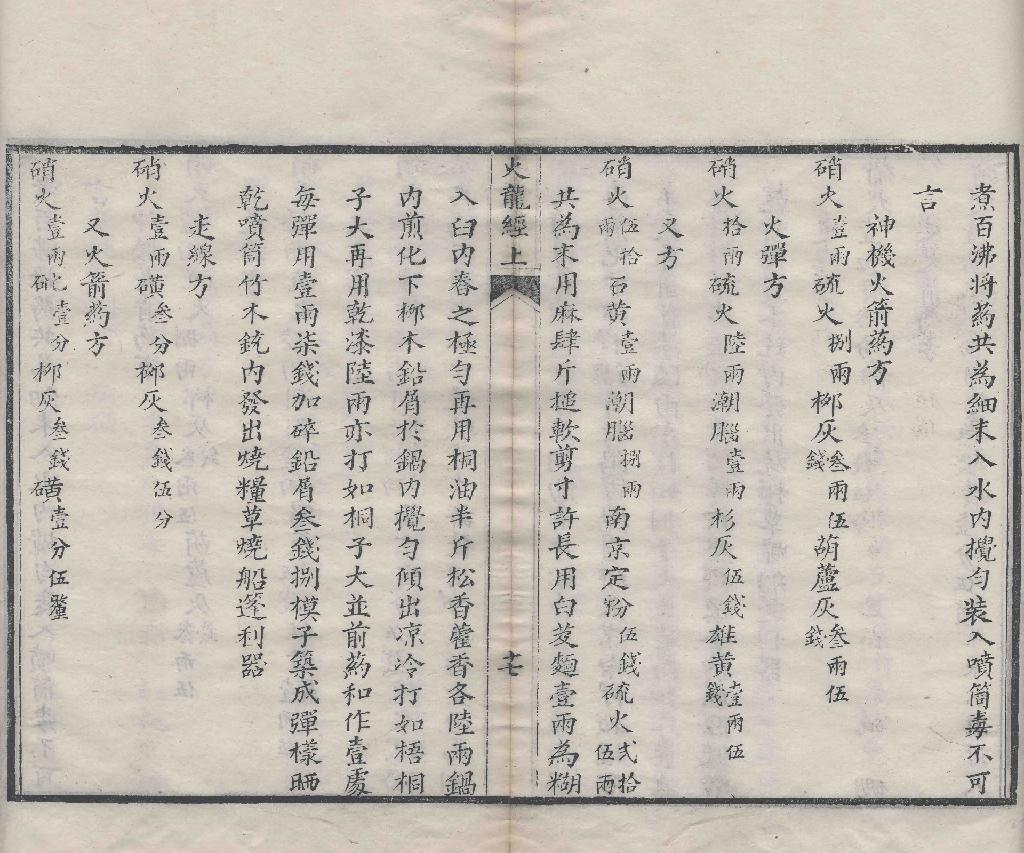 煮百沸將葯共為細末入水内攪勻装入噴筒毒不可
言
神機火箭葯方
硝火壹兩硫火捌兩柳灰叁兩伍錢葫蘆灰叁兩伍錢
火彈方
硝火拾兩硫火陸兩潮腦壹兩杉灰伍錢雄黄壹兩伍錢
又方
硝火伍拾兩石黄壹兩潮腦捌兩南京定粉伍錢硫火弍拾伍兩
共為末用麻肆斤搥軟剪寸許長用白芨麵壹兩為糊
火龍經上
十七
入臼内舂之極勻再用桐油半斤松香藿香各陸兩鍋
内煎化下柳木鉛屑於鍋内攪勻傾出凉冷打如梧桐
子大再用乾漆陸兩亦打如桐子大並前葯和作壹處
每彈用壹兩柒錢加碎鉛屑叁錢捌模子築成彈樣晒
乾噴筒竹木銃内發出燒糧草燒船篷利器
走線方
硝火壹兩磺叁分柳灰叁錢伍分
又火箭葯方
硝火壹兩砒壹分柳灰叁錢磺壹分伍釐